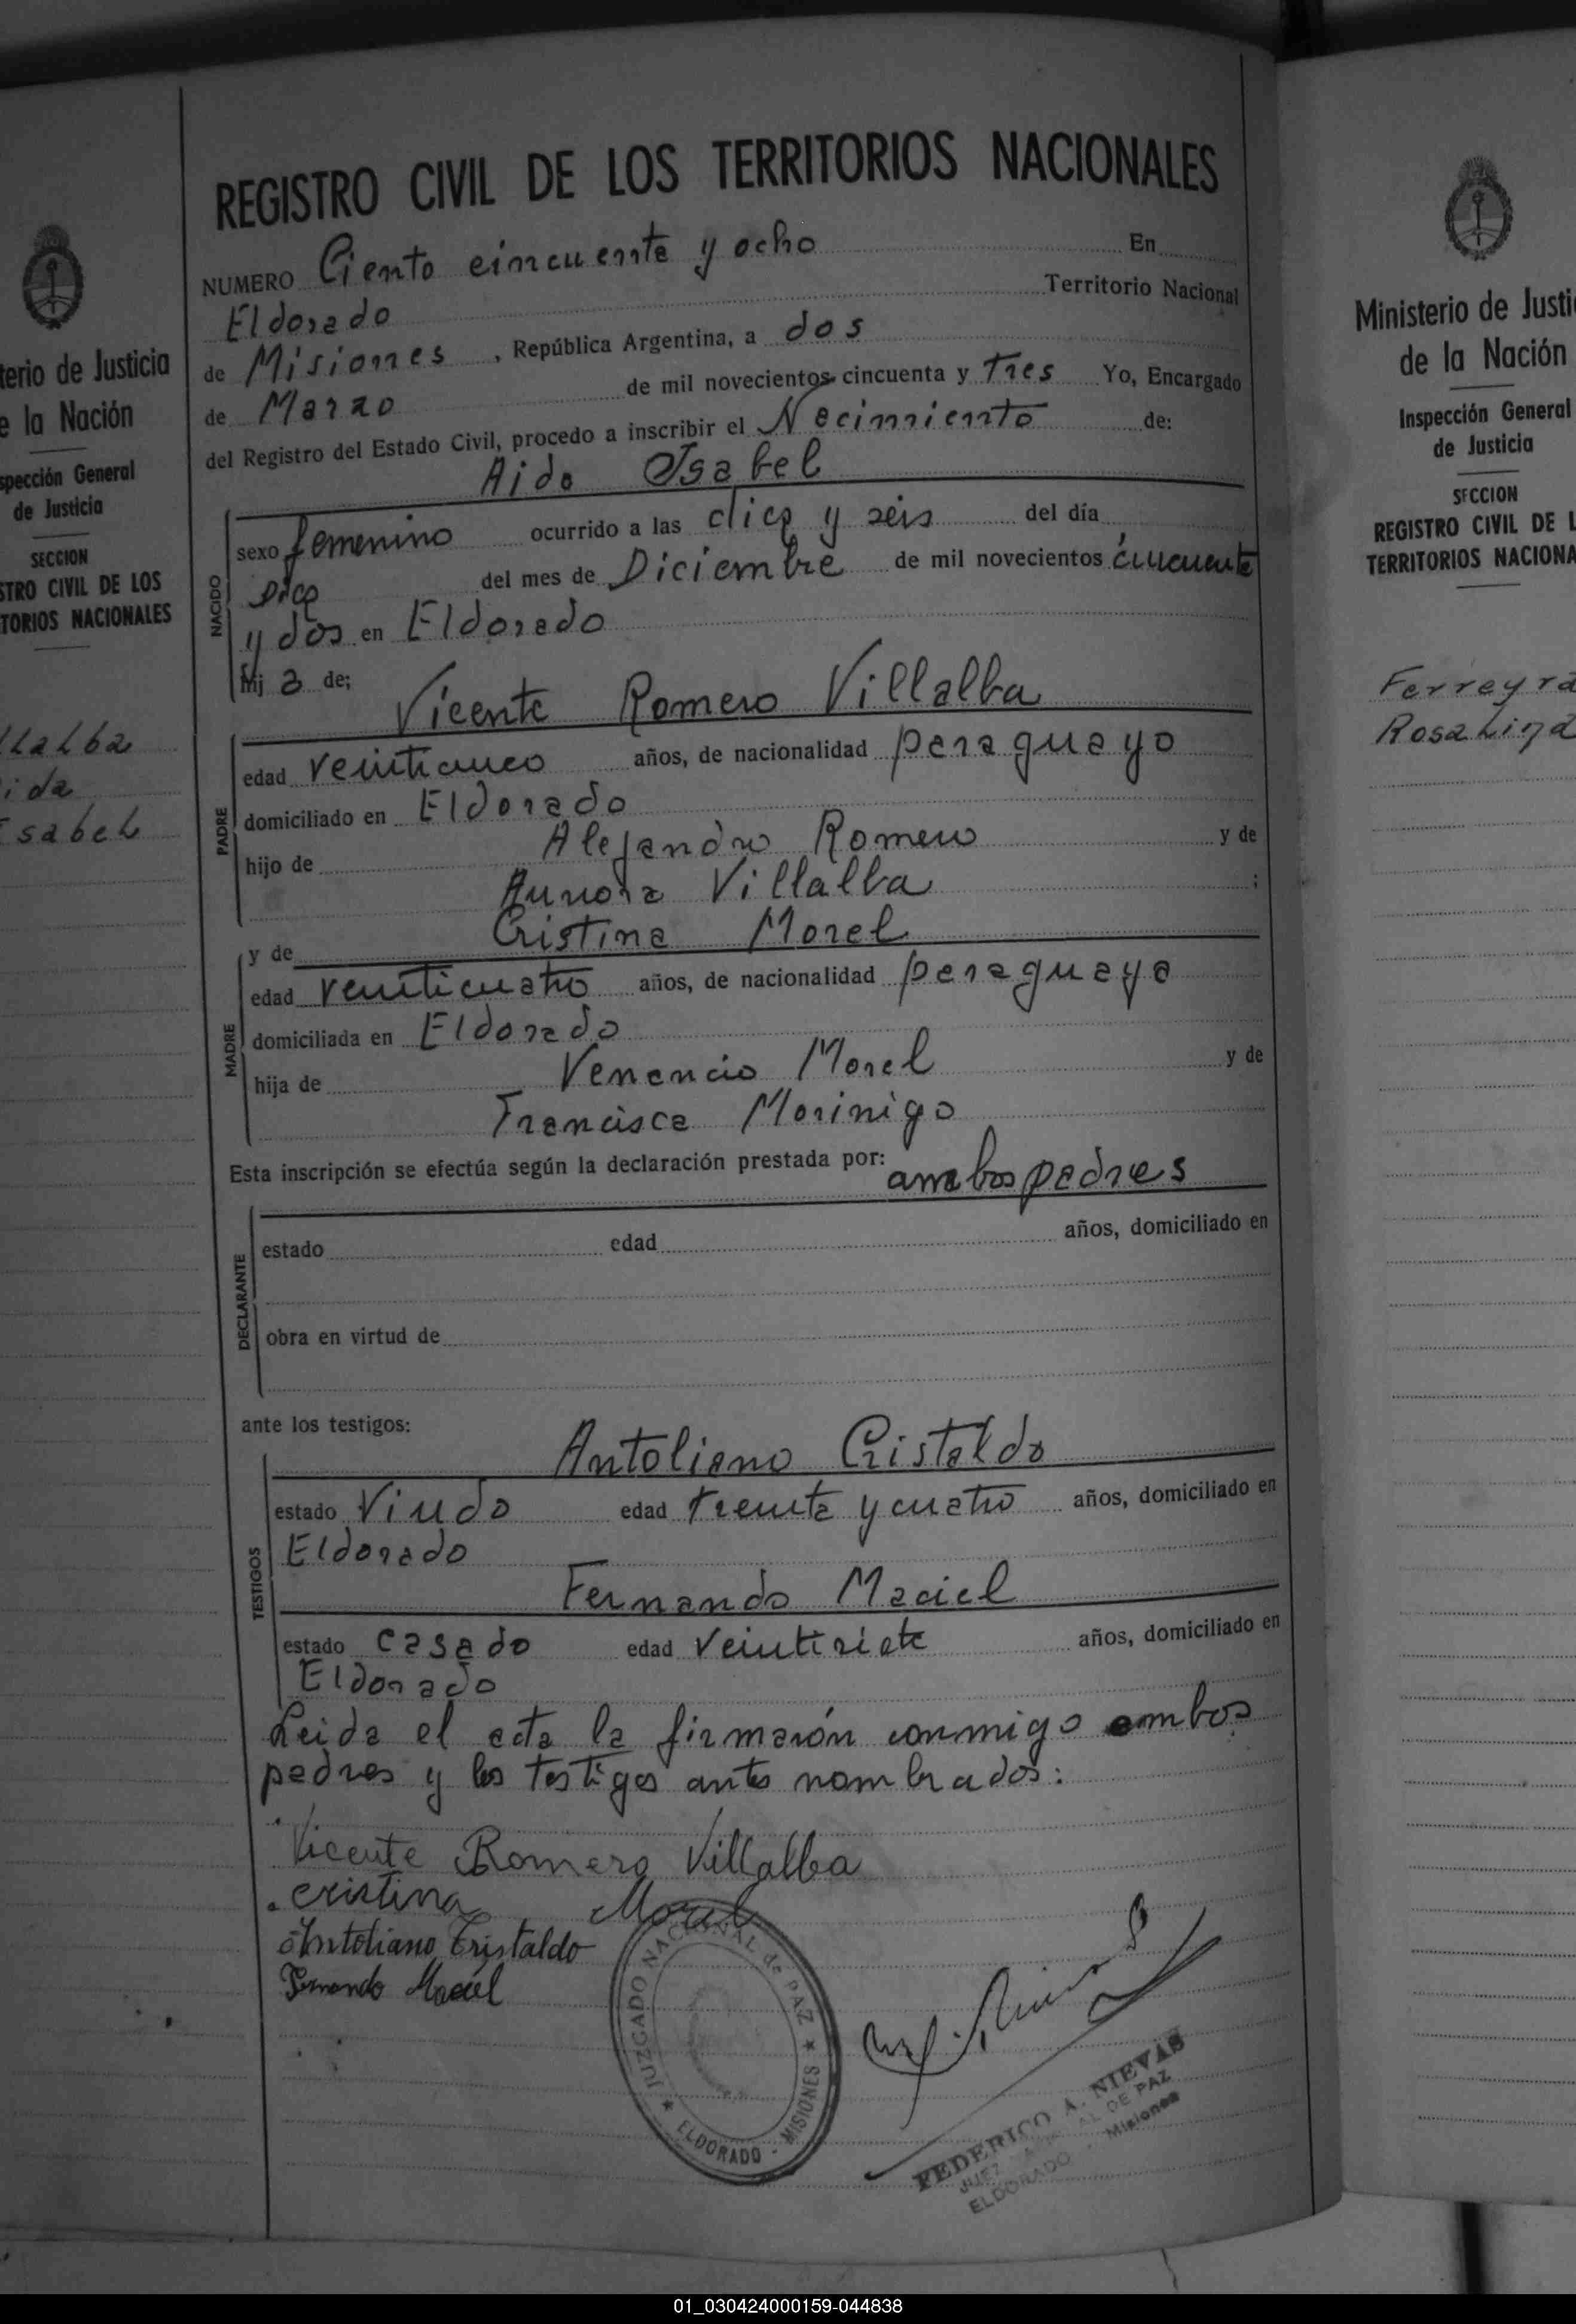 terio de Justicia
e la Nación
spección General
de Justicia
SECCION
STRO CIVIL DE LOS
TORIOS NACIONALES
llalba
ida
sabel
REGISTRO CIVIL DE LOS TERRITORIOS NACIONALES
NUMERO Ciento cincuenta y ocho En
Eldorado Territorio Nacional
de Misiones , República Argentina, a dos
de Marzo de mil novecientos cincuenta y Tres Yo, Encargado
del Registro del Estado Civil, procedo a inscribir el Nacimiento de:
Aida Isabel
NACIDO
sexo femenino ocurrido a las diez y seis del día
Diez del mes de Diciembre de mil novecientos cincuenta
y dos en Eldorado
hija de;
Vicente Romero Villalba
PADRE
edad veinticinco años, de nacionalidad paraguayo
domiciliado en Eldorado
hijo de Alejandro Romero y de
Aurora Villalba ;
y de Cristina Morel
MADRE
edad veinticuatro años, de nacionalidad paraguaya
domiciliada en Eldorado
hija de Venancio Morel y de
Francisca Morinigo
Esta inscripción se efectúa según la declaración prestada por: ambos padres
DECLARANTE
estado edad años, domiciliado en
obra en virtud de
ante los testigos:
Antoliano Cristaldo
TESTIGOS
estado Viudo edad treinta y cuatro años, domiciliado en
Eldorado
Fernando Maciel
estado casado edad veintisiete años, domiciliado en
Eldorado
Leida el acta la firmarón conmigo ambos
padres y los testigos antes nombrados:
Vicente Romero Villalba
cristina Morel
Antoliano Cristaldo
Fernando Maciel
JUZGADO NACIONAL de PAZ
ELDORADO - MISIONES
FEDERICO A. NIEVAS
JUEZ AL DE PAZ
ELDORADO - Misiones
Ministerio de Justi
de la Nación
Inspección General
de Justicia
SECCION
REGISTRO CIVIL DE L
TERRITORIOS NACIONA
Ferreyra
Rosa Lina
01_030424000159-044838